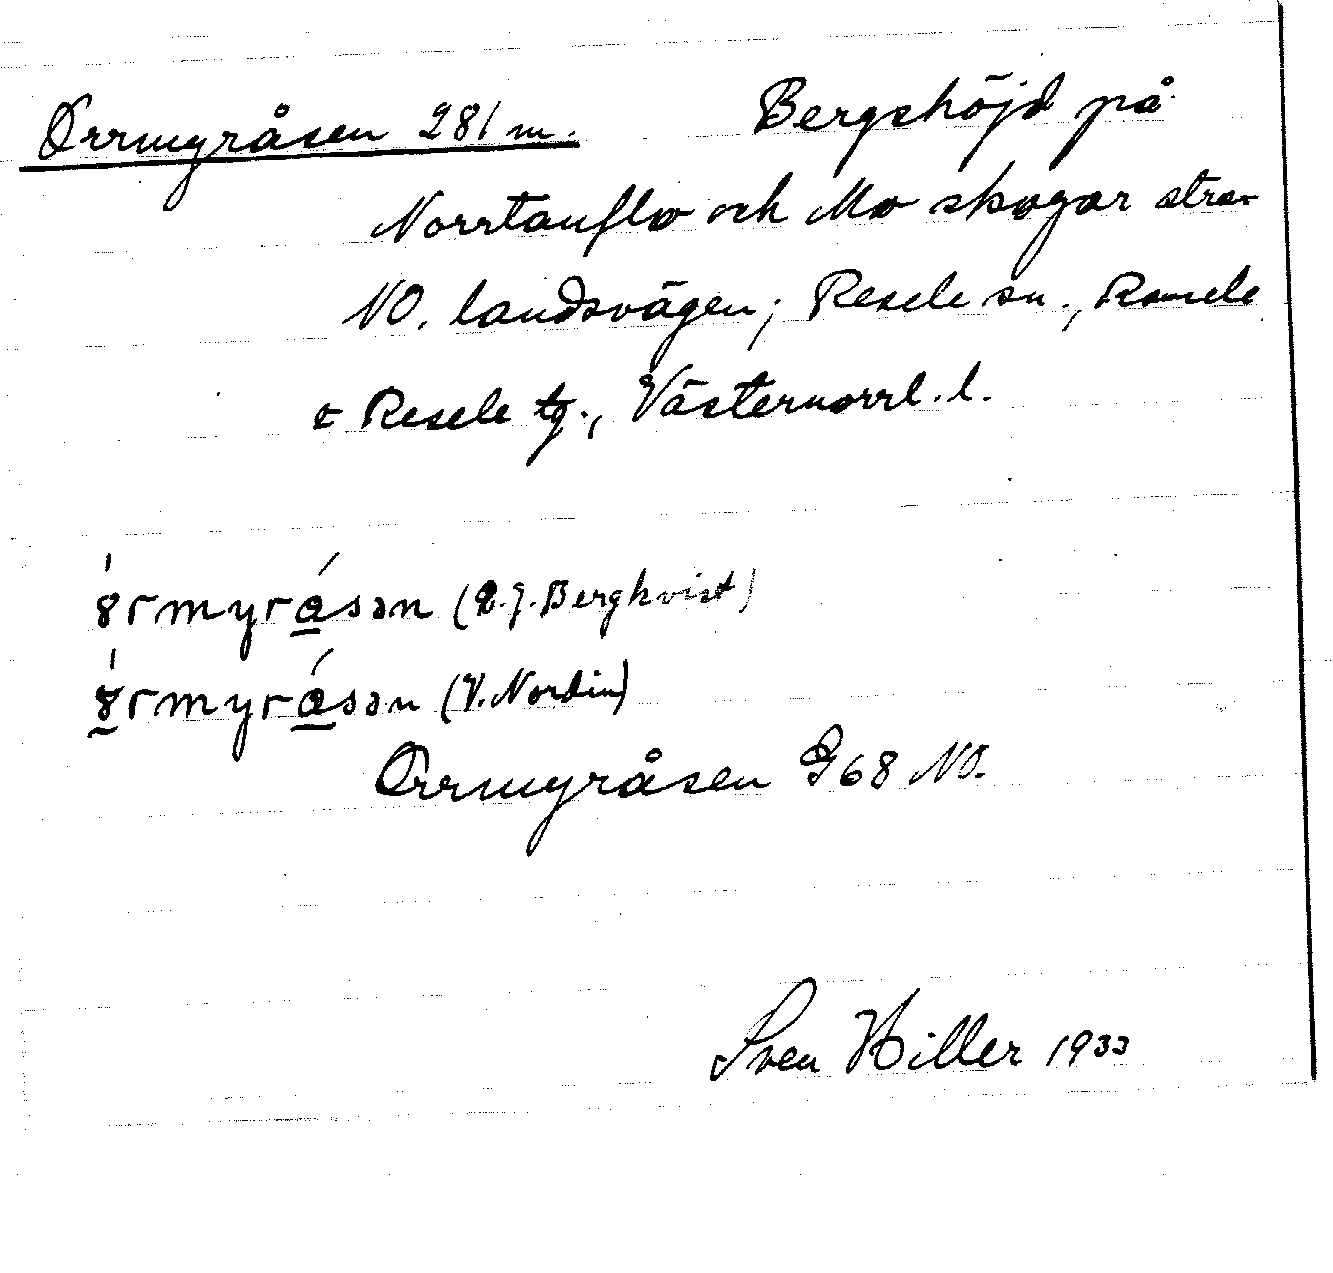 Orrmyråsen 281 m. Bergshöjd på
Norrtanflo och Mo skogar strax
NO. landsvägen; Resele sn., Ramsele
o Resele tg., Västernorrl. l.
(Berghvist)
(V. Nordin)
Orrmyråsen G68 NO.
Sven Hiller 1933